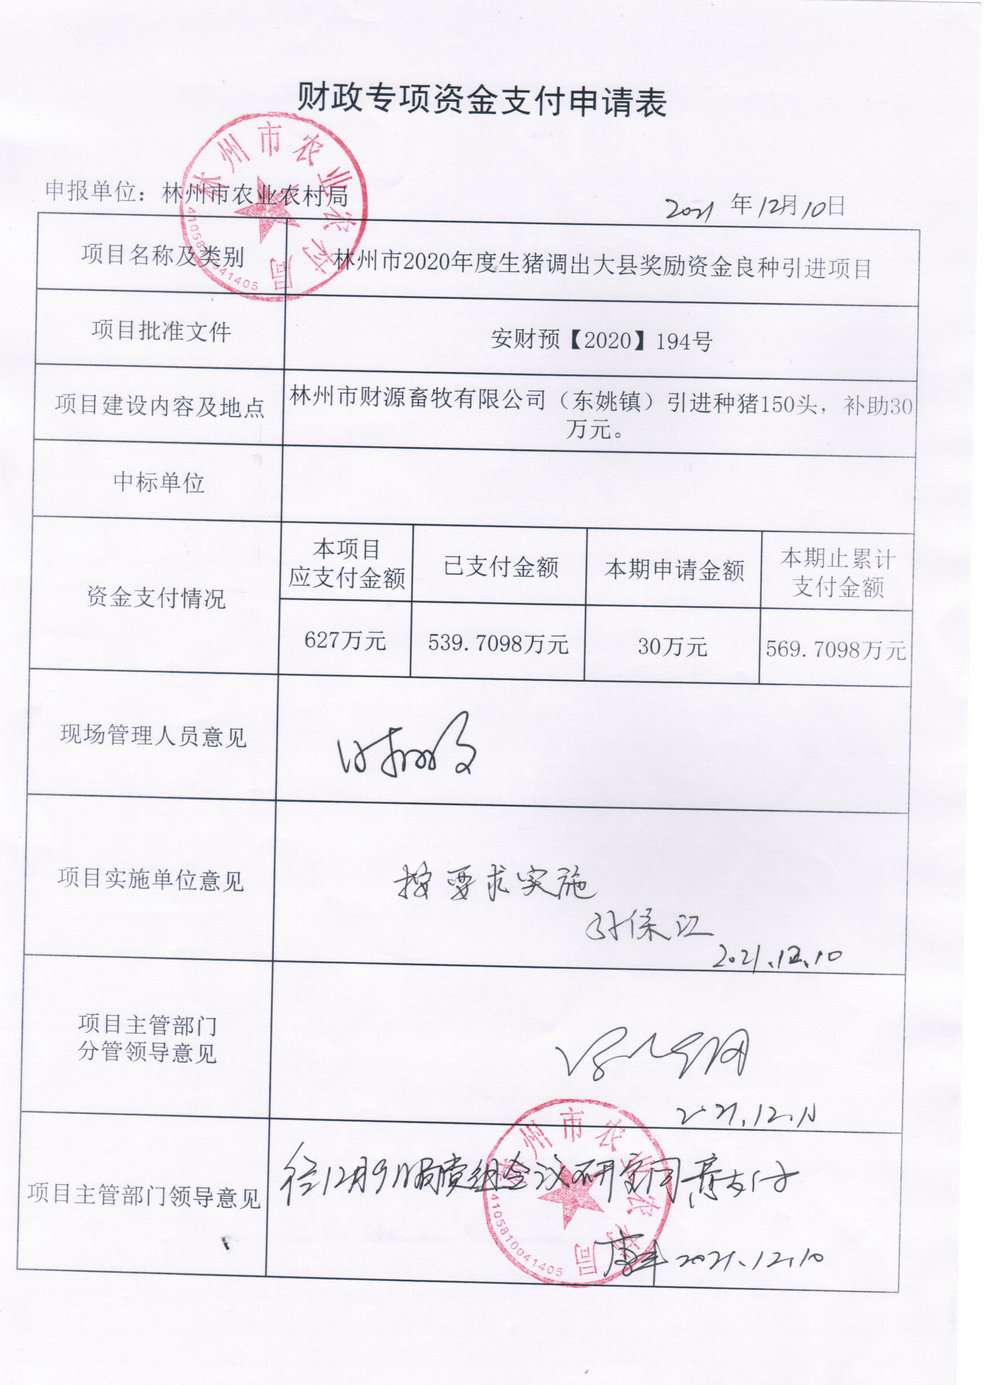 财政专项资金支付申请表
申报单位：林州市农业农村局
2021 年12月10日
项目名称及类别
林州市2020年度生猪调出大县奖励资金良种引进项目
项目批准文件
安财预【2020】194号
项目建设内容及地点
林州市财源畜牧有限公司（东姚镇）引进种猪150头，补助30
万元。
中标单位
资金支付情况
本项目
应支付金额
已支付金额
本期申请金额
本期止累计
支付金额
627万元
539.7098万元
30万元
569.7098万元
现场管理人员意见
项目实施单位意见
按要求实施
孙保江
2021.12.10
项目主管部门
分管领导意见
2021.12.10
项目主管部门领导意见
经12月9日局党组会议研究同意支付
2021.12.10
林州市农业农村局
4105810041405
林州市农业农村局
4105810041405